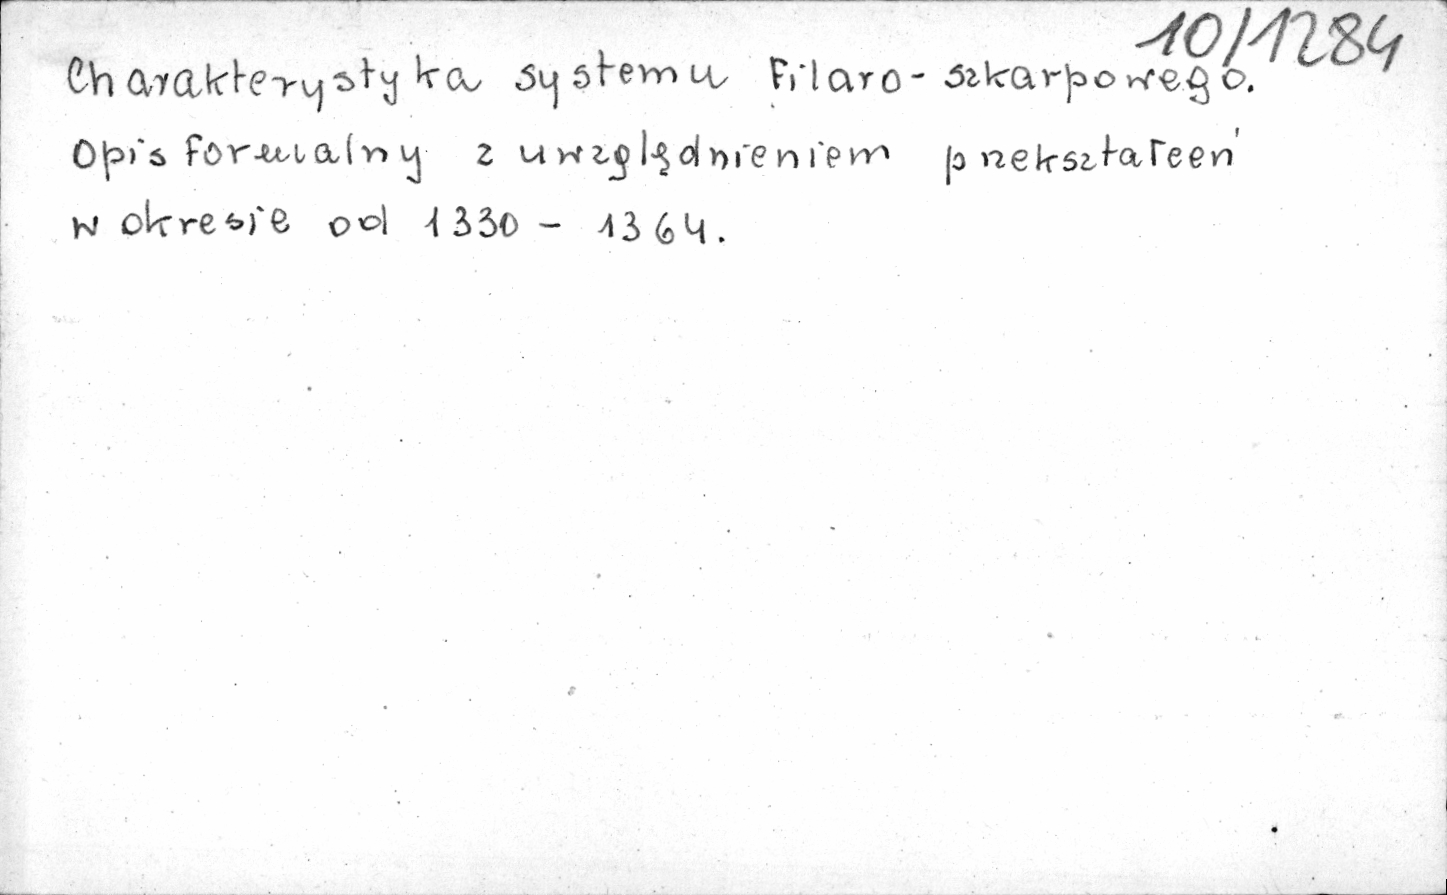 10/1284
Charakterystyka systemu filaro-szkarpowego.
Opis formalny z uwzględnieniem przekształceń
w okresie od 1330 - 1364.